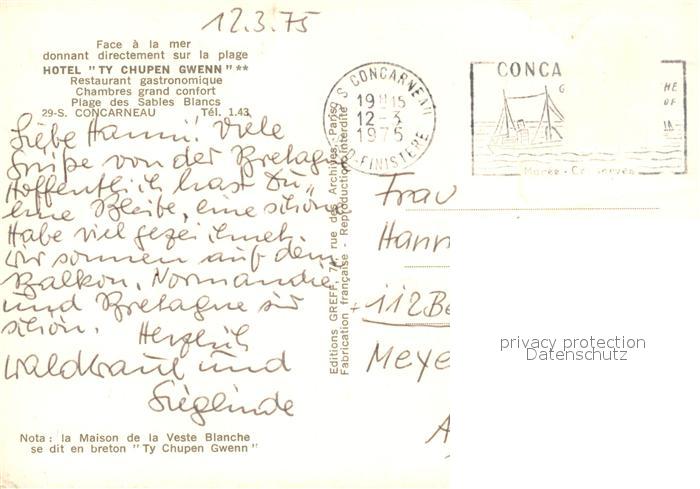 12.3.75
Face à la mer
donnant directement sur la plage
HOTEL "TY CHUPEN GWENN"**
Restaurant gastronomique
Chambres grand confort
Plage des Sables Blancs
29-S. CONCARNEAU Tél. 1.43
Liebe Hanni! Viele
Grüße von der Bretagne
Hoffentlich hast Du
eine Bleibe, eine schöne
Habe viel gezeichnet.
Wir sonnen auf dem
Balkon, Normandie
und Bretagne sir
schön. Herzlich
Waldtraut und
Sieglinde
Nota : la Maison de la Veste Blanche
se dit en breton "Ty Chupen Gwenn"
Editions GREFF, rue des Archives - Paris
Fabrication française - Reproduction interdite
S CONCARNEAU
19 H15
12-3
1975
FINISTERE
CONCA
Marée - Conserves
Frau
Hann
112 Be
Meye
A
privacy protection
Datenschutz